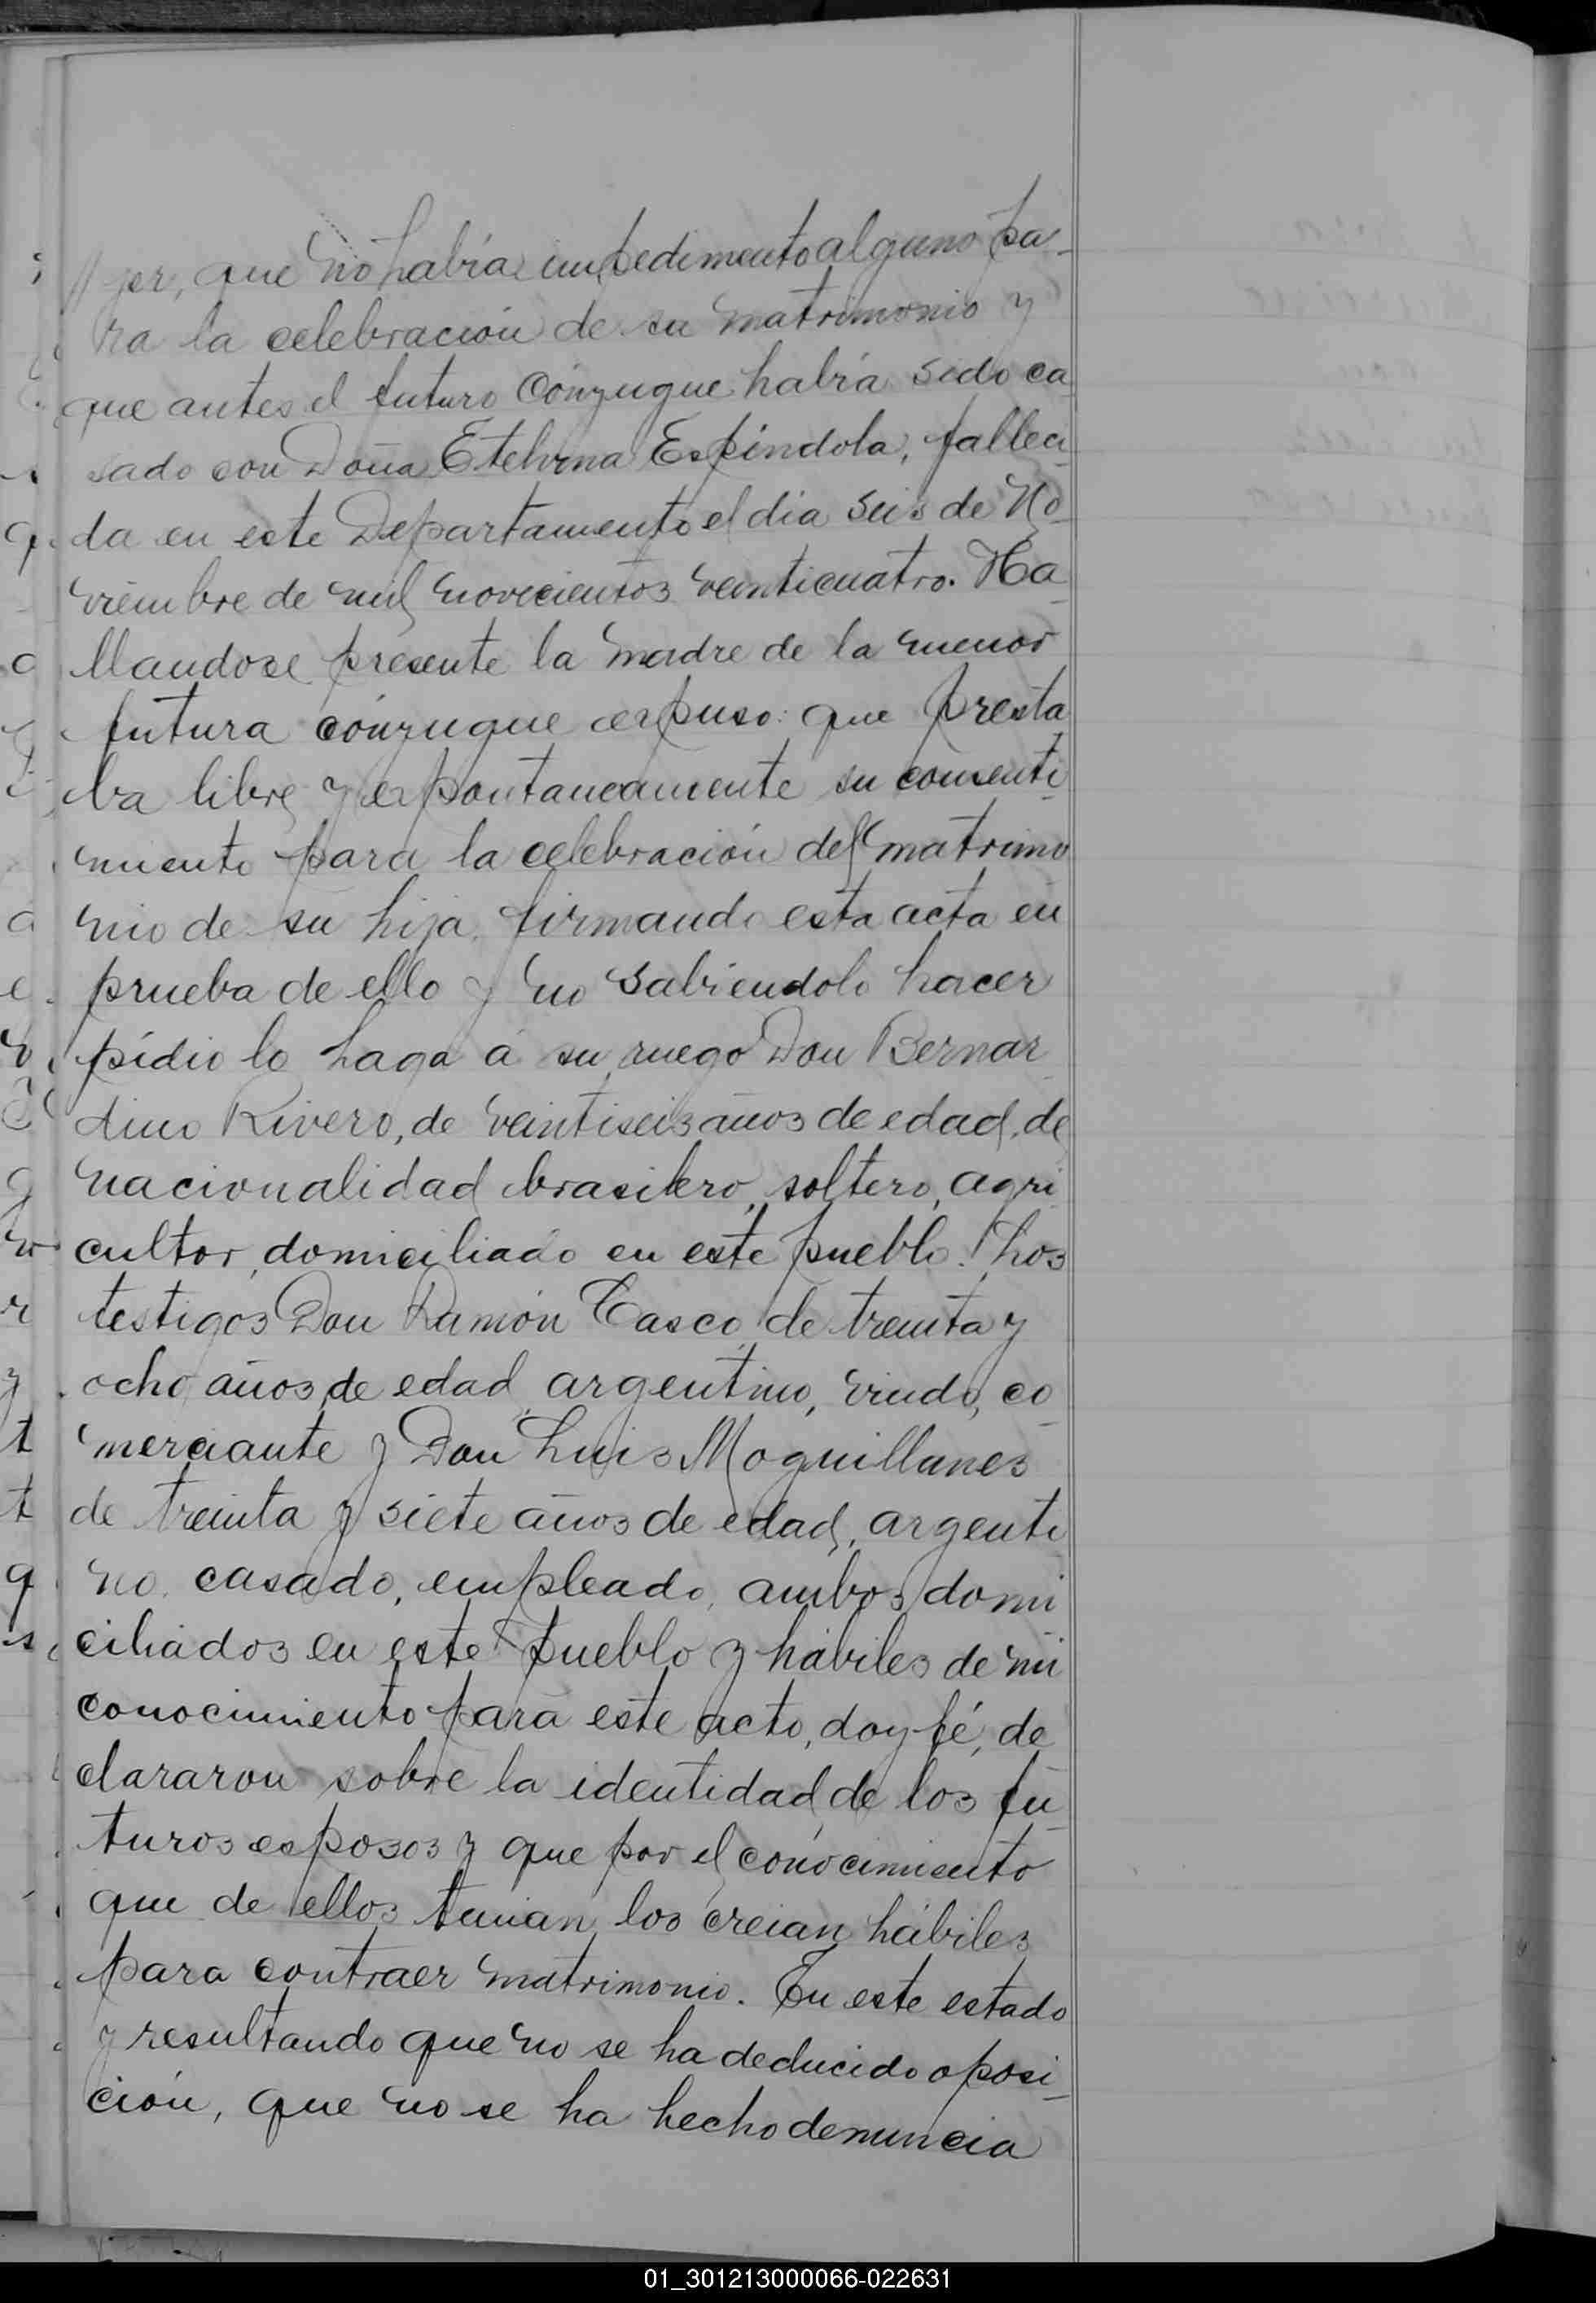 //jer, que no habia impedimento alguno pa-
ra la celebración de su matrimonio y
que antes el futuro cónyugue habia sido ca-
sado con Doña Etelvina Espíndola, falleci-
da en este Departamento el dia seis de No-
viembre de mil novecientos veinticuatro. Ha-
llandose presente la madre de la menor
futura cónyugue expuso: que presta-
ba libre y espontaneamente su consenti-
miento para la celebración del matrimo
nio de su hija, firmando esta acta en
prueba de ello y no sabiendolo hacer
pidio lo haga á su ruego Don Bernar
dino Rivero, de veintiseis años de edad, de
nacionalidad brasilero, soltero, agri
cultor, domiciliado en este pueblo. Los
testigos Don Ramón Casco, de treinta y
ocho años de edad, argentino, viudo, co-
merciante y Don Luis Moguillanes
de treinta y siete años de edad, argenti
no, casado, empleado, ambos domi
ciliados en este pueblo y hábiles de mi
conocimiento para este acto, doy fé, de
clararon sobre la identidad de los fu-
turos esposos y que por el conocimiento
que de ellos tenian los creian hábiles
para contraer matrimonio. En este estado
y resultando que no se ha deducido oposi-
ción, que no se ha hecho denuncia
01_301213000066-022631